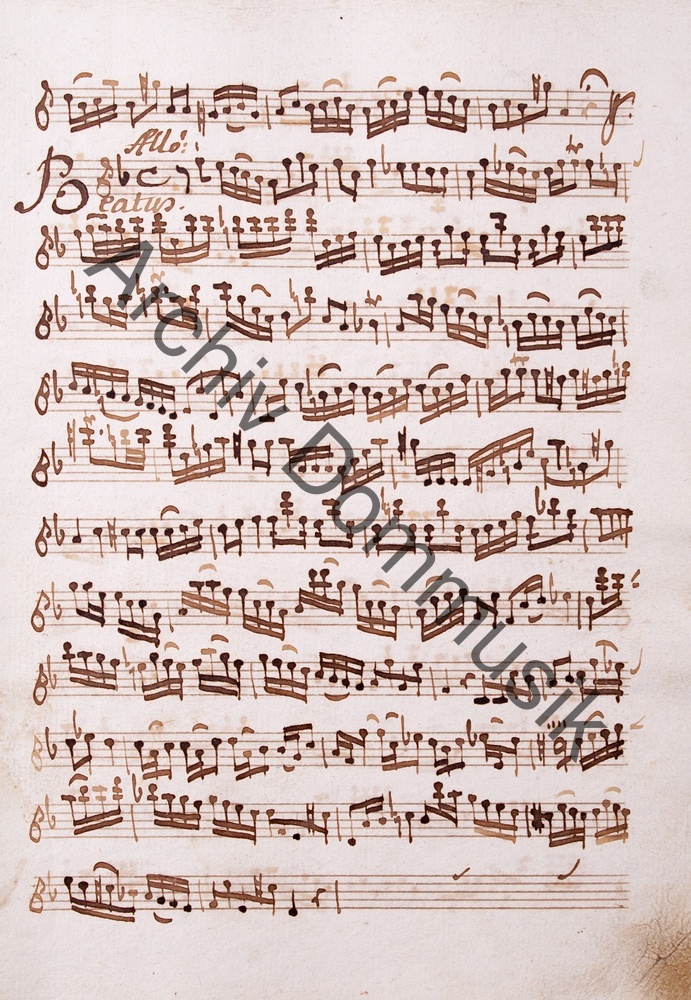 Allo:
Beatus.
Archiv Dommusik